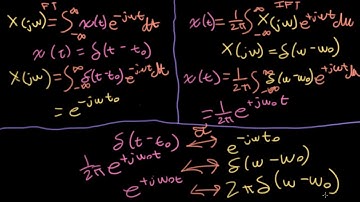 FT
X(jω) = ∫_{-∞}^{∞} x(t) e^{-jωt} dt
x(t) = δ(t - t₀)
X(jω) = ∫_{-∞}^{∞} δ(t - t₀) e^{-jωt} dt
= e^{-jωt₀}
IFT
x(t) = 1/2π ∫_{-∞}^{∞} X(jω) e^{+jωt} dω
X(jω) = δ(ω - ω₀)
x(t) = 1/2π ∫_{-∞}^{∞} δ(ω - ω₀) e^{+jωt} dω
= 1/2π e^{+jω₀t}
δ(t - t₀) ↔ e^{-jωt₀}
1/2π e^{+jω₀t} ↔ δ(ω - ω₀)
e^{+jω₀t} ↔ 2πδ(ω - ω₀)